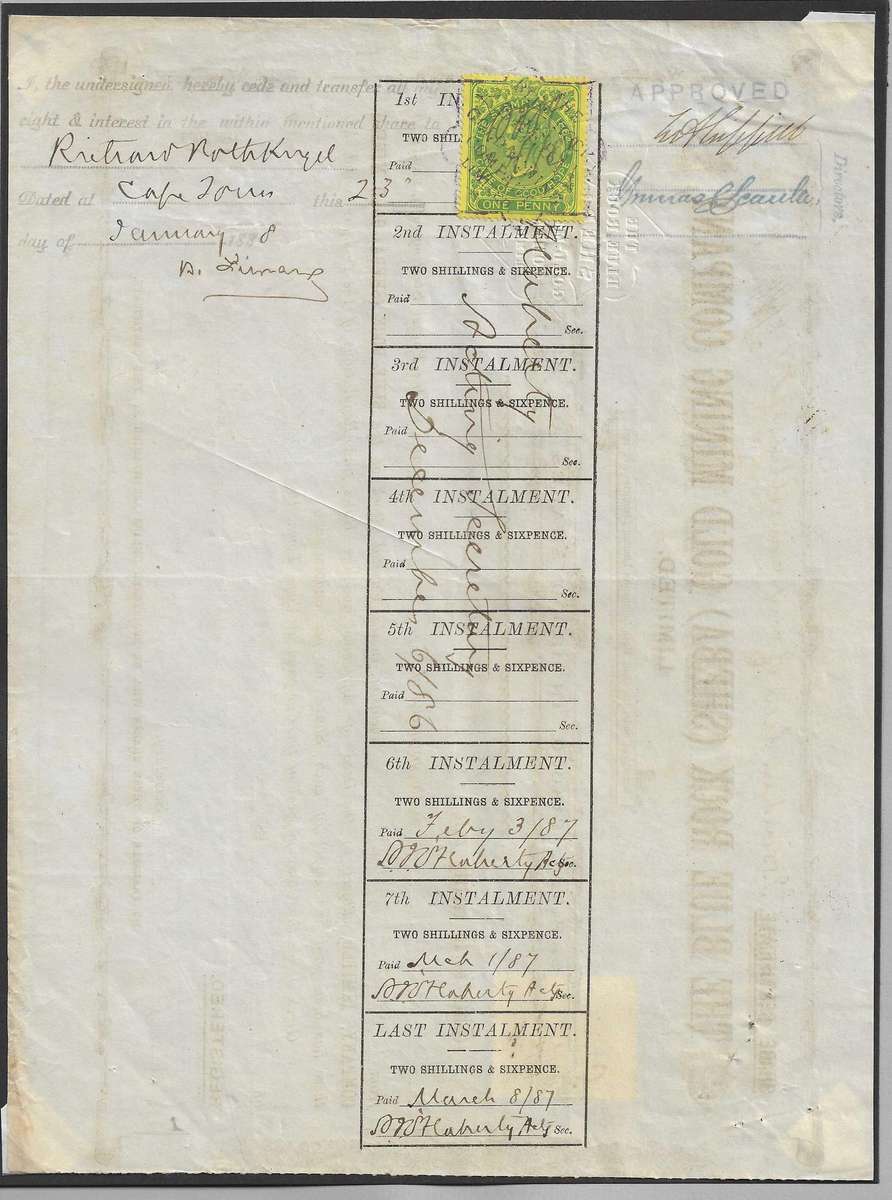 I, the undersigned hereby cede and transfer all my
right & interest in the within mentioned share to
Richard Rothkugel
Dated at Cape Town this 23
day of January 1888
1st IN
TWO SHIL
Paid
ONE PENNY
2nd INSTALMENT.
TWO SHILLINGS & SIXPENCE.
Paid
Sec.
3rd INSTALMENT.
TWO SHILLINGS & SIXPENCE.
Paid
Sec.
4th INSTALMENT.
TWO SHILLINGS & SIXPENCE.
Paid
Sec.
5th INSTALMENT.
TWO SHILLINGS & SIXPENCE.
Paid
Sec.
Flaherty
Acting Secretary
December 6/86
6th INSTALMENT.
TWO SHILLINGS & SIXPENCE.
Paid Feby 3/87
Flaherty Actg Sec.
7th INSTALMENT.
TWO SHILLINGS & SIXPENCE.
Paid Mch 1/87
Flaherty Actg Sec.
LAST INSTALMENT.
TWO SHILLINGS & SIXPENCE.
Paid March 8/87
Flaherty Actg Sec.
APPROVED
Directors.
THE BLUE ROCK (SHEBA) GOLD MINING COMPANY
LIMITED.
REGISTERED.